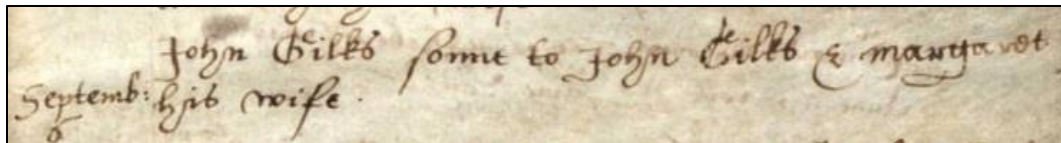 John Gilks sonne to John Gilks & margaret
Septemb: his wife.
6